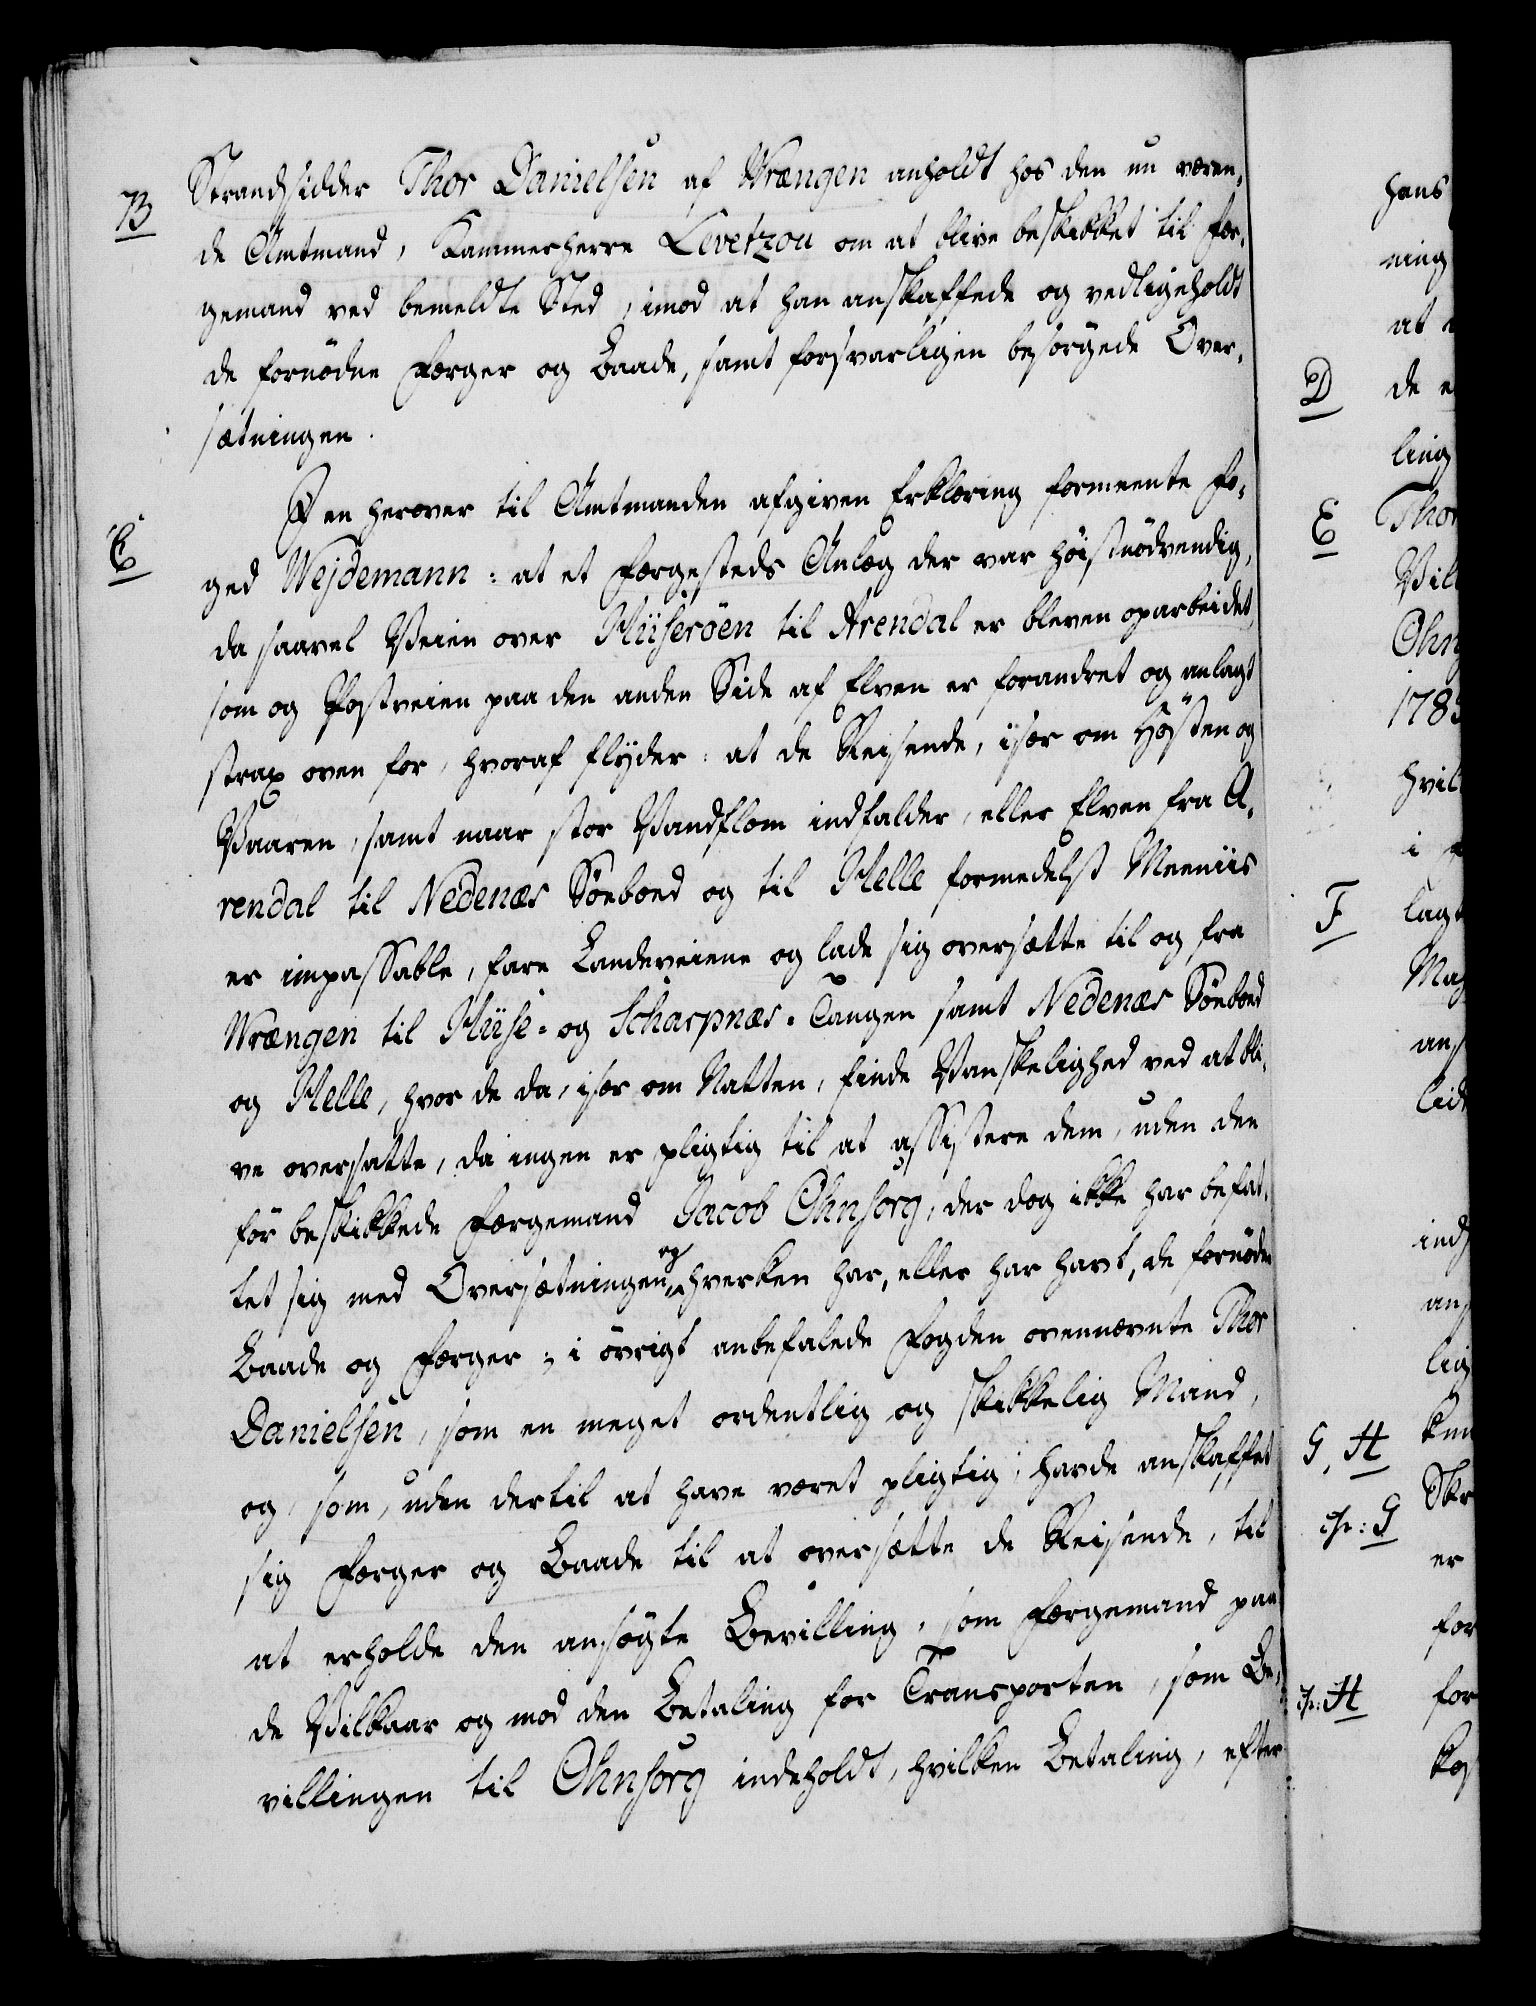 B
Strandsidder Thor Danielsen af Wrængen anholdt hos den nu væren-
de Amtmand, Kammerherre Levetzou om at blive beskikket til Fær-
gemand ved bemeldte Sted, imod at han anskaffede og vedligeholdt
de fornödne Færger og Baade, samt forsvarligen besörgede Over-
sætningen.
C
I en herover til Amtmanden afgiven Erklæring formeente Fo-
ged Wejdemann: at et Færgesteds Anlæg der var höistnödvendig,
da saavel Veien over Hüseröen til Arendal er bleven oparbeidet,
som og Postveien paa den anden Side af Elven er forandret og anlagt
strax oven for, hvoraf flyder: at de Reisende, især om Hösten og
Vaaren, samt naar stor Vandflom indfalder, eller Elven fra A-
rendal til Nedenæs Söeboed og til Helle formedelst Meeniis
er impassable, fare Landeveiene og lade sig oversætte til og fra
Wrængen til Hüse- og Scharpnæs-Tangen samt Nedenæs Söeboed
og Helle, hvor de da, især om Natten, finde Vanskelighed ved at bli-
ve oversatte, da ingen er pligtig til at assistere dem, uden den
för beskikkede Færgemand Jacob Ohnsorg, der dog ikke har befat-
tet sig med Oversætningen og hverken har, eller har havt, de fornödne
Baade og Færger; i övrigt anbefalede Fogden ovennævnte Thor
Danielsen, som en meget ordentlig og skikkelig Mand,
og, som, uden dertil at have været pligtig, havde anskaffet
sig Færger og Baade til at oversætte de Reisende, til
at erholde den ansögte Bevilling, som Færgemand paa
de Vilkaar og mod den Betaling for Transporten, som Be-
villingen til Ohnsorg indeholdt, hvilken Betaling, efter
hans
ning
at
D
de
ling
E
Thor
Vil
Ohn
178
hvil
i
F
lagt
an
lid
ind
an
lig
G, H
Skr
G
er
for
H
for